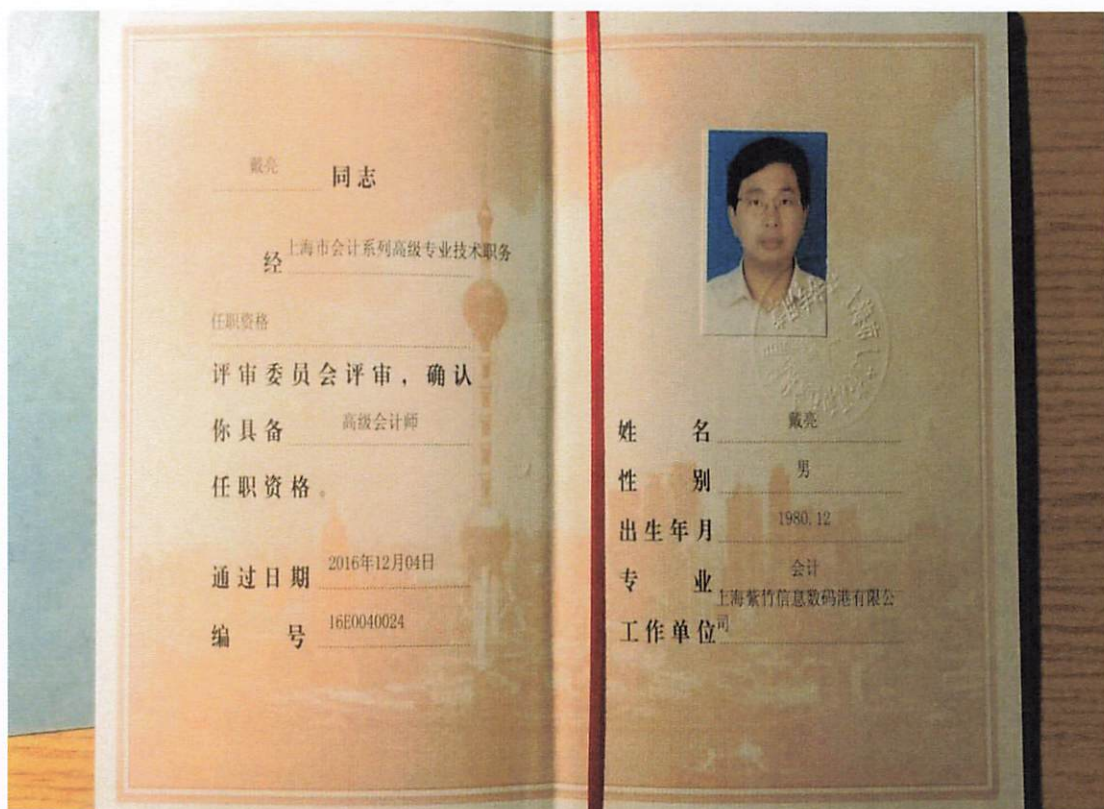 戴亮 同志
经 上海市会计系列高级专业技术职务
任职资格
评审委员会评审，确认
你具备 高级会计师
任职资格。
通过日期 2016年12月04日
编号 16E0040024
姓名 戴亮
性别 男
出生年月 1980.12
专业 会计
工作单位 上海紫竹信息数码港有限公
司